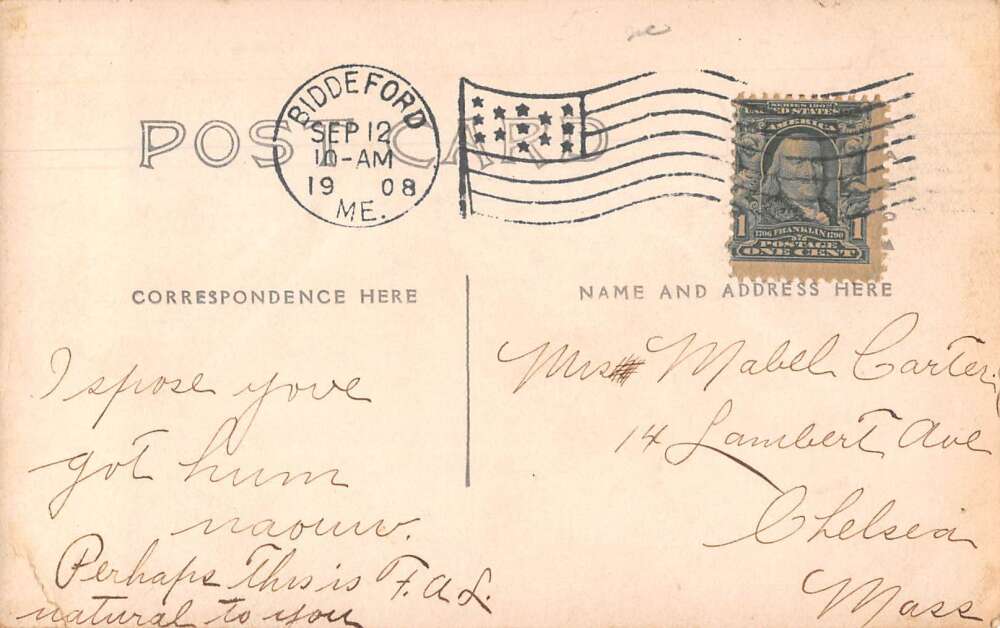 POST CARD
BIDDEFORD
SEP 12
10-AM
19 08
ME.
SERIES 1902
UNITED STATES OF
AMERICA
1 1
1706 FRANKLIN 1790
POSTAGE
ONE CENT
CORRESPONDENCE HERE
I spose yove
got hum
naouw.
Perhaps This is F.A.L.
natural to you
NAME AND ADDRESS HERE
Mrs Mabel Carter
14 Lambert Ave
Chelsea
Mass